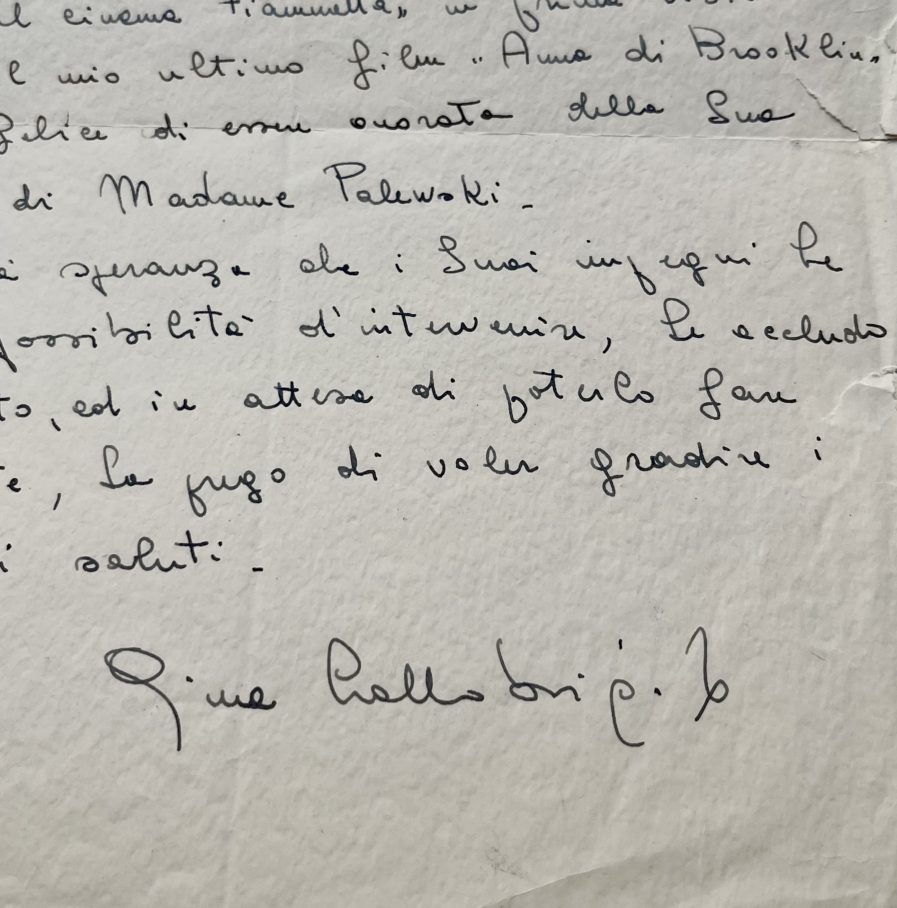 l cinema "Fiammetta", in prima
l mio ultimo film "Anna di Brooklin"
felice di essere onorata della Sua
di Madame Palewski.
speranza che i Suoi impegni Le
possibilità d'intervenire, Le accludo
to, ed in attesa di poterLo fare
te, La prego di voler gradire i
i saluti.
Gina Lollobrigida